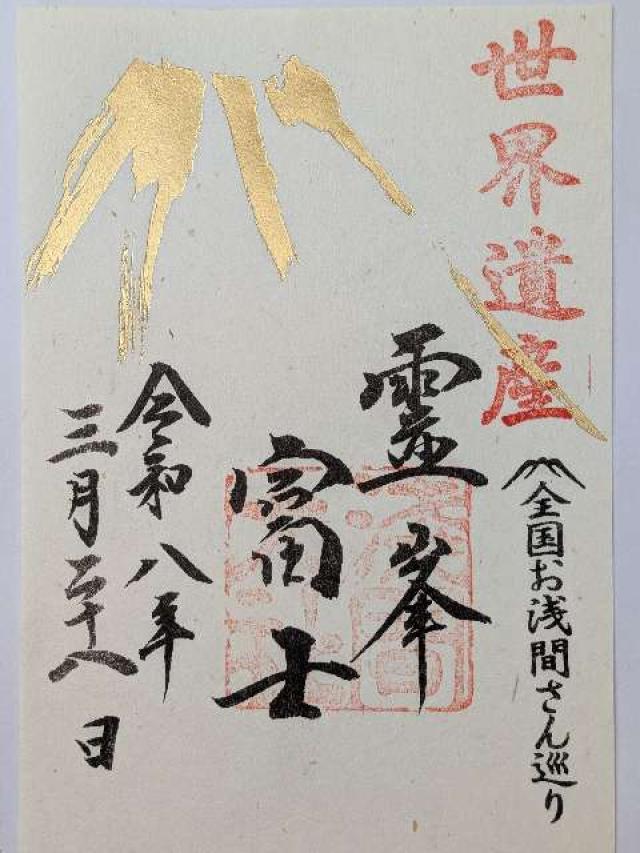 世界遺産
全国お浅間さん巡り
霊峯
富士
令和八年
三月二十八日